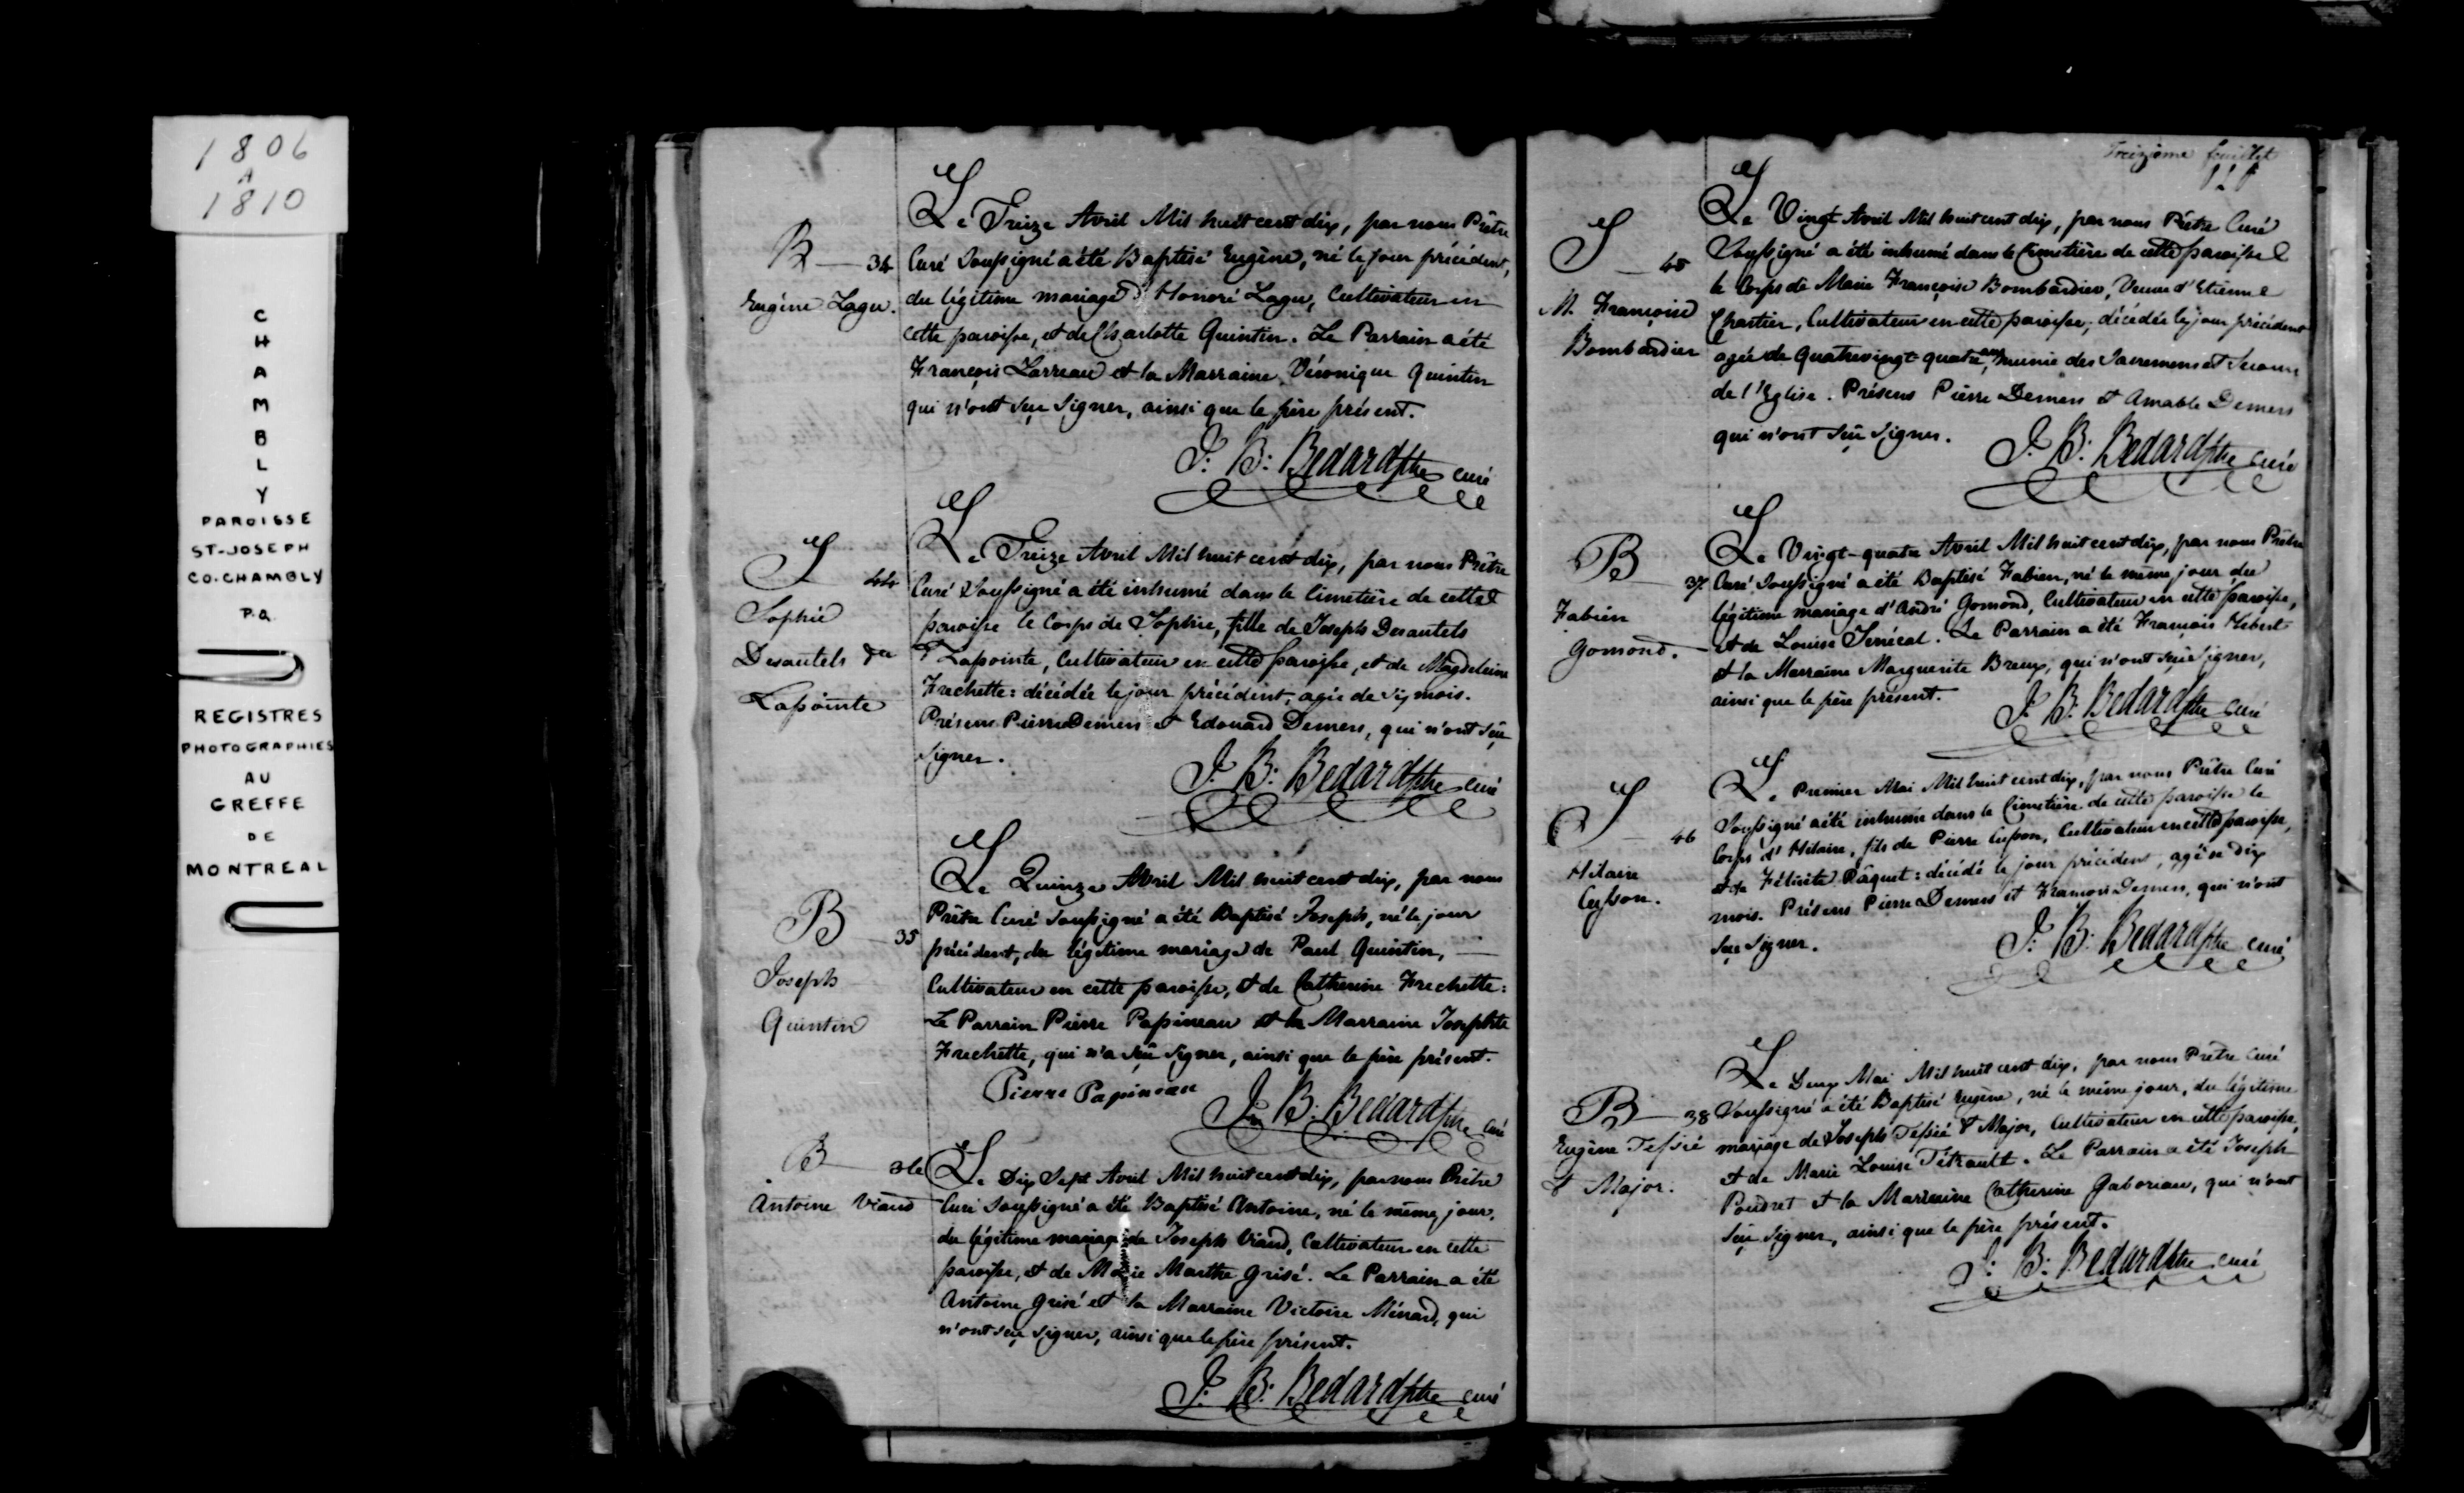 1806
A
1810
C
H
A
M
B
L
Y
PAROISSE
ST-JOSEPH
CO. CHAMBLY
P.Q.
REGISTRES
PHOTOGRAPHIES
AU
GREFFE
DE
MONTREAL
B — 34
Eugène Lague.
Le Treize Avril Mil huit cent dix, par nous Prêtre
Curé Soussigné a été Baptisé Eugène, né le jour précédent,
du légitime mariage d'Honoré Lague, Cultivateur en
cette paroisse, et de Charlotte Quintin. Le Parrain a été
François Larreau et la Marraine Véronique Quintin
qui n'ont seu signer, ainsi que le père présent.
J. B: Bedard ptre curé
S 44
Sophie
Desautels dte
Lapointe
Le Treize Avril Mil huit cent dix, par nous Prêtre
Curé Soussigné a été inhumé dans le Cimetière de cette
paroisse le Corps de Sophie, fille de Joseph Desautels
Lapointe, Cultivateur en cette paroisse, et de Magdeleine
Frechette: décédée le jour précédent, agée de six mois.
Présens Pierre Demers et Edouard Demers, qui n'ont seu
signer.
J. B: Bedard ptre curé
B — 35
Joseph
Quintin
Le Quinze Avril Mil huit cent dix, par nous
Prêtre Curé Soussigné a été Baptisé Joseph, né le jour
précédent, du légitime mariage de Paul Quintin, —
Cultivateur en cette paroisse, et de Catherine Frechette:
Le Parrain Pierre Papineau et la Marraine Josephte
Frechette, qui n'a seu signer, ainsi que le père présent.
Pierre Papineau
J. B. Bedard ptre curé
B — 36
Antoine Viaud
Le Dix Sept Avril Mil huit cent dix, par nous Prêtre
Curé Soussigné a été Baptisé Antoine, né le même jour,
du légitime mariage de Joseph Viaud, Cultivateur en cette
paroisse, et de Marie Marthe Grisé. Le Parrain a été
Antoine Grisé et la Marraine Victoire Ménard, qui
n'ont seu signer, ainsi que le père présent.
J. B: Bedard ptre curé
Treizième feuillet
S — 45
M. Françoise
Bombardier
Le Vingt Avril Mil huit cent dix, par nous Prêtre Curé
Soussigné a été inhumé dans le Cimetière de cette paroisse
le Corps de Marie Françoise Bombardier, Veuve d'Etienne
Chartier, Cultivateur en cette paroisse; décédée le jour précédent
agée de Quatrevingt-quatre ans, munie des Sacremens et Secours
de l'Eglise. Présens Pierre Demers et Amable Demers
qui n'ont seu signer.
J. B: Bedard ptre curé
B — 37
Fabien
Gomond.
Le Vingt-quatre Avril Mil huit cent dix, par nous Prêtre
Curé Soussigné a été Baptisé Fabien, né le même jour du
légitime mariage d'André Gomond, Cultivateur en cette paroisse,
et de Louise Senécal. Le Parrain a été François Hebert
et la Marraine Marguerite Breux, qui n'ont seu signer,
ainsi que le père présent.
J. B: Bedard ptre curé
S — 46
Hilaire
Cusson.
Le Premier Mai Mil huit cent dix, par nous Prêtre Curé
Soussigné a été inhumé dans le Cimetière de cette paroisse le
Corps d'Hilaire, fils de Pierre Cusson, Cultivateur en cette paroisse,
et de Félicité Paquet: décédé le jour précédent, agé de dix
mois. Présens Pierre Demers et François Demers, qui n'ont
seu signer.
J. B: Bedard ptre curé
B — 38
Eugène Tessié
Major.
Le Deux Mai Mil huit cent dix, par nous Prêtre Curé
Soussigné a été Baptisé Eugène, né le même jour, du légitime
mariage de Joseph Tessié Major, Cultivateur en cette paroisse,
et de Marie Louise Tétrault. Le Parrain a été Joseph
Poudret et la Marraine Catherine Gaboriau, qui n'ont
seu signer, ainsi que le père présent.
J. B: Bedard ptre curé